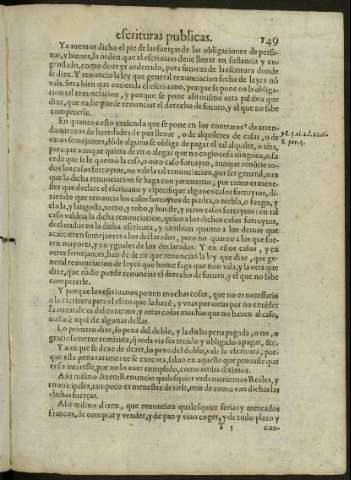 escrituras publicas. 149
Ya auemos dicho el pie de las fuerças de las obligaciones de perso-
nas, y bienes, la orden que el escriuano deue lleuar en sustancia y en-
grossado, como deue yr ordenado, para firmeza de la escritura donde
se dize. Y renuncio la ley que general renunciacion fecha de leyes nō
vala. Sera bien que entienda el escriuano, porque se pone en la obliga-
cion tal renunciacion, y porque se pone assi mismo otra palabra que
dize, que nadie puede renunciar el derecho de futuro, y el que no sabe
competerle.
En quanto a esto entienda que se pone en los contratos de arren-
damientos de heredades de pan lleuar, o de alquileres de casas, o de
otros semejantes, dōde alguno se obliga de pagar el tal alquiler, o rēta,
para que aunque quiera de no alegar que no cogio cosa ninguna, o su
ceda que se le quemò la casa, o otro caso fortuyto, aunque renūcie to-
dos los casos fortuytos, no vale la tal renunciacion, por ser general, aun
que la dicha renunciacion se haga con juramento, por tanto es menes-
ter que declare el escriuano y especifique algunos casos fortuytos, di-
ziendo que renuncia los casos fortuytos de piedra, o niebla, o fuego, y
elada, y langosta, tomo, y robo, y hueste, y otros casos fortuytos: en tal
caso valdria la dicha renunciacion, quāto a los dichos casos fortuytos
declarados en la dicha escritura, y tambien quanto a los demas que
acaecieren semejantes a los declarados, pero no quanto a los que fue-
ren mayores, y no yguales de los declarados. Y en estos casos, y en
otros semejantes, han de dezir que renuncian la ley que dize, que ge-
neral renunciacion de leyes que home faga que non vala, y la otra que
dize, que nadie puede renunciar el derecho de futuro, y el que no sabe
competerle.
Y porque los escriuanos ponen muchas cosas, que no es necessario
a la escritura para el efeto que la hazē, y vnas por otras por no entēder
la naturaleza del contrato, y otras cosas muchas que no hazen al caso,
auisarè aqui de algunas dellas.
Lo primero dize, so pena del doblo, y la dicha pena pagada, o no, o
graciosamente remitida, q̄ toda via sea tenido y obligado a pagar, &c.
Y aun que se dexe de dezir, so pena del doblo, vale la escritura, por-
que esta pena raramente se executa, saluo en aquello que pareciesse que
es a interesse, por no lo auer cumplido, como arriba diximos.
Assi mismo dizen: Renuncio qualesquier ordenamientos Reales, y
municipales, tampoco es menester dezirse, mas de como van dichas las
dichas fuerças.
Assi mismo dizen, que renuncian qualesquier ferias y mercados
francos, de comprar y vender, y de pan y vino coger, y de todo plazo y
T 5 con-